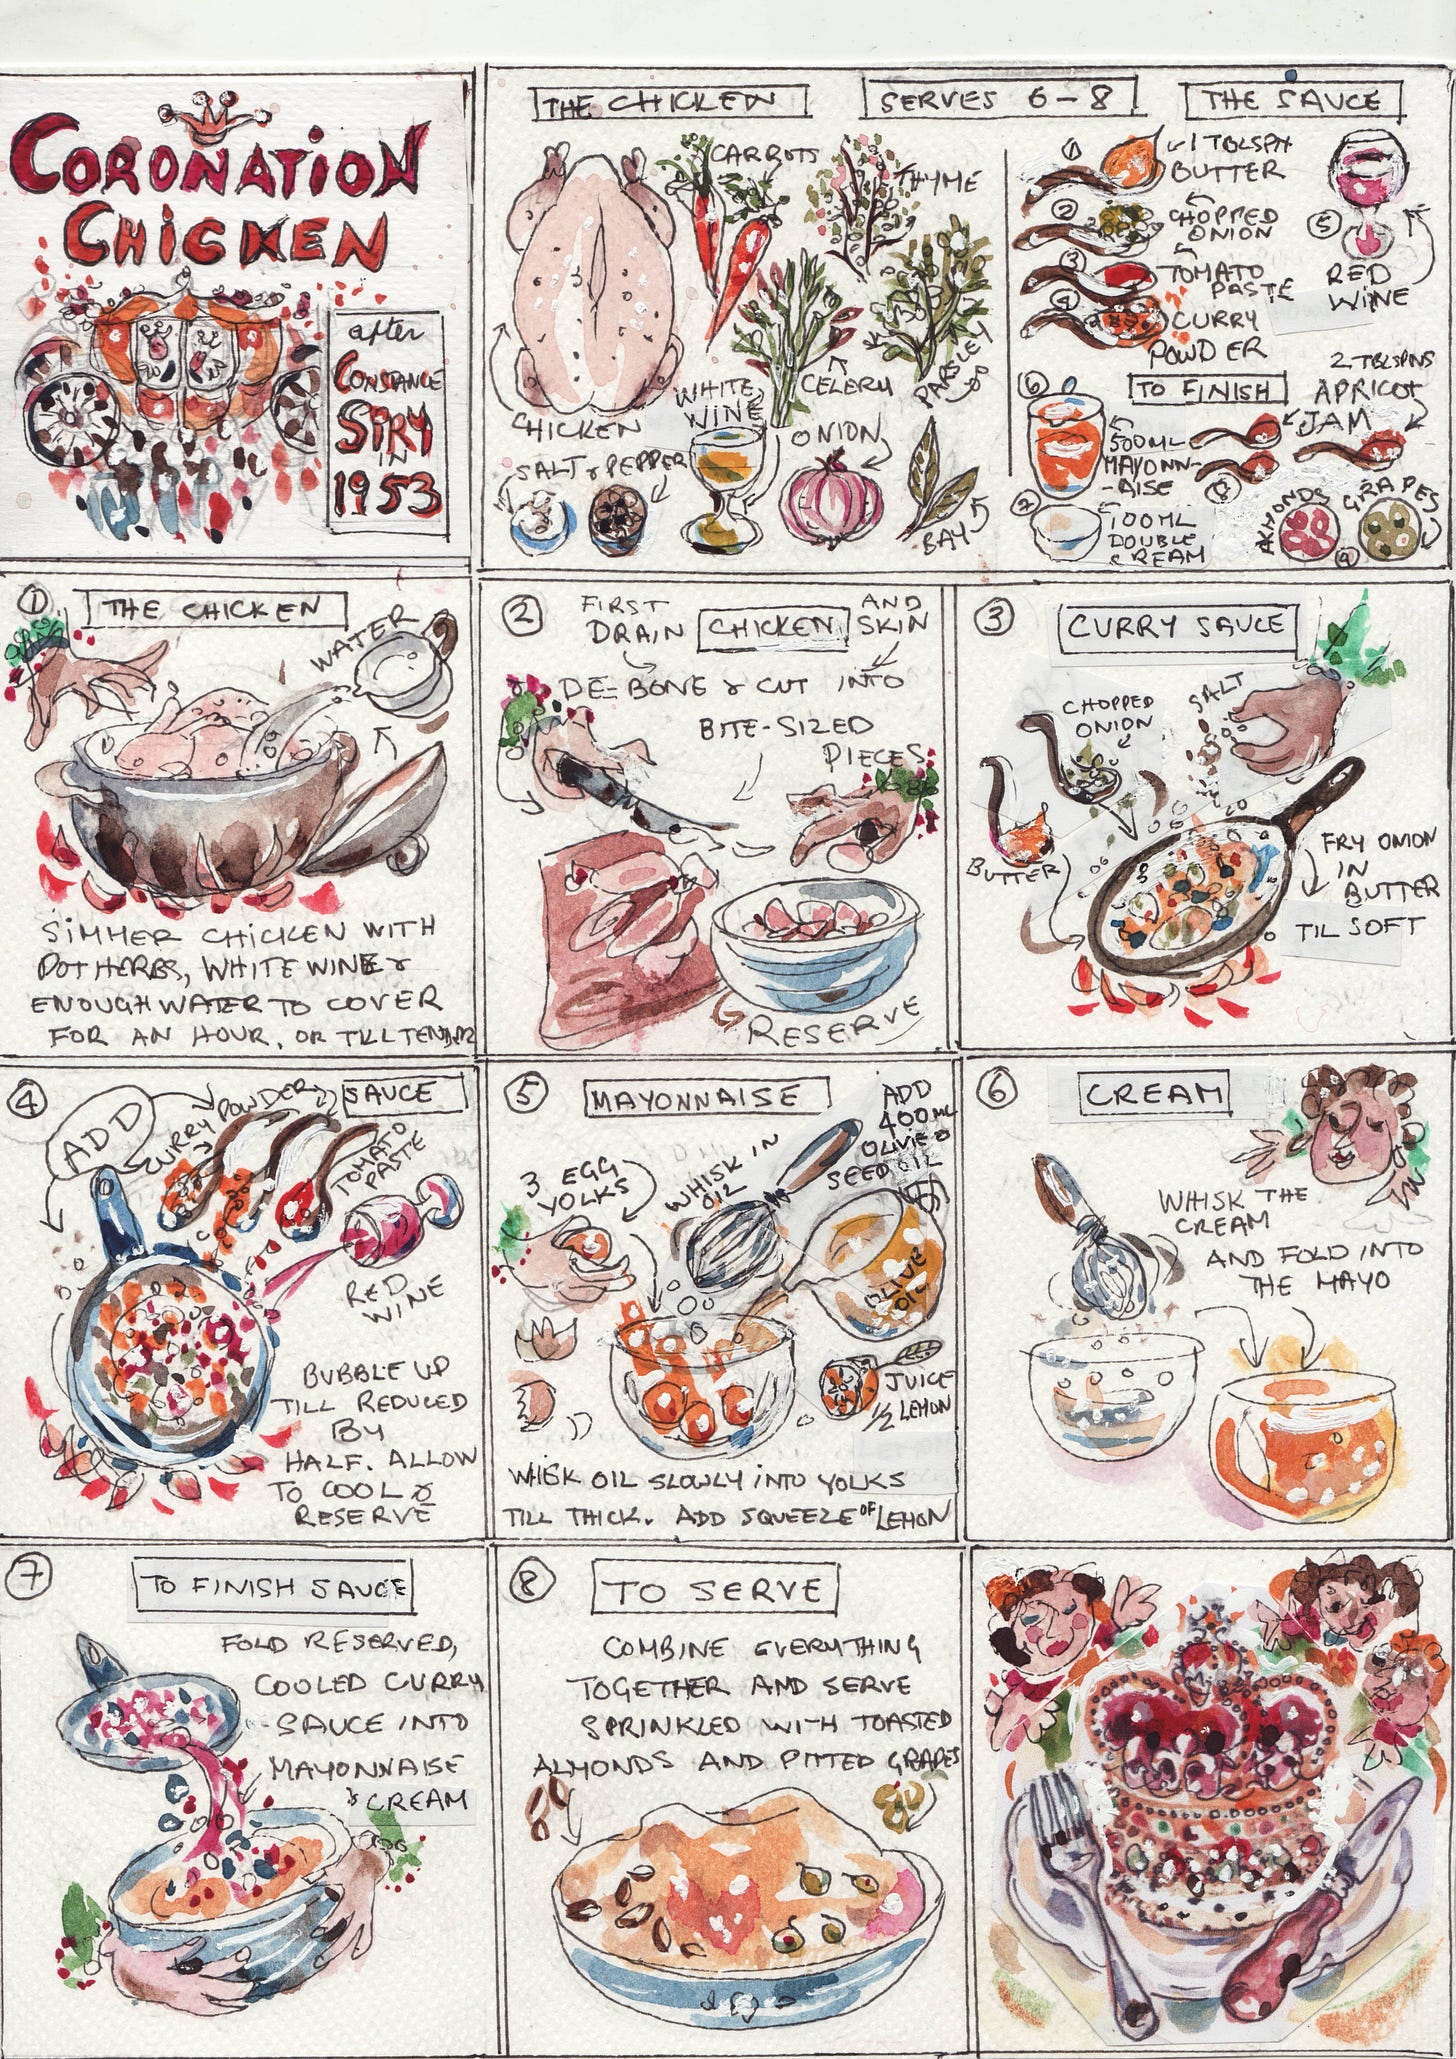 CORONATION
CHICKEN
after
CONSTANCE
SPRY
IN
1953
THE CHICKEN
SERVES 6-8
THE SAUCE
CARROTS
THYME
CELERY
PARSLEY
CHICKEN
WHITE
WINE
ONION
SALT & PEPPER
BAY
1
1 TBLSPN
BUTTER
2
CHOPPED
ONION
3
TOMATO
PASTE
4
CURRY
POWDER
5
RED
WINE
6
TO FINISH
2 TBLSPNS
APRICOT
JAM
500ML
MAYONN-
-AISE
100ML
DOUBLE
CREAM
ALMONDS
GRAPES
1
THE CHICKEN
WATER
SIMMER CHICKEN WITH
POT HERBS, WHITE WINE &
ENOUGH WATER TO COVER
FOR AN HOUR, OR TILL TENDER
2
FIRST
DRAIN
CHICKEN
AND
SKIN
DE-BONE & CUT INTO
BITE-SIZED
PIECES
RESERVE
3
CURRY SAUCE
CHOPPED
ONION
SALT
BUTTER
FRY ONION
IN
BUTTER
TIL SOFT
4
ADD
CURRY POWDER
SAUCE
TOMATO
PASTE
RED
WINE
BUBBLE UP
TILL REDUCED
BY
HALF. ALLOW
TO COOL &
RESERVE
5
MAYONNAISE
ADD
400ML
OLIVE &
SEED OIL
3 EGG
YOLKS
WHISK IN
OIL
OLIVE
OIL
JUICE
1/2 LEMON
WHISK OIL SLOWLY INTO YOLKS
TILL THICK. ADD SQUEEZE OF LEMON
6
CREAM
WHISK THE
CREAM
AND FOLD INTO
THE MAYO
7
TO FINISH SAUCE
FOLD RESERVED,
COOLED CURRY
SAUCE INTO
MAYONNAISE
& CREAM
8
TO SERVE
COMBINE EVERYTHING
TOGETHER AND SERVE
SPRINKLED WITH TOASTED
ALMONDS AND PITTED GRAPES